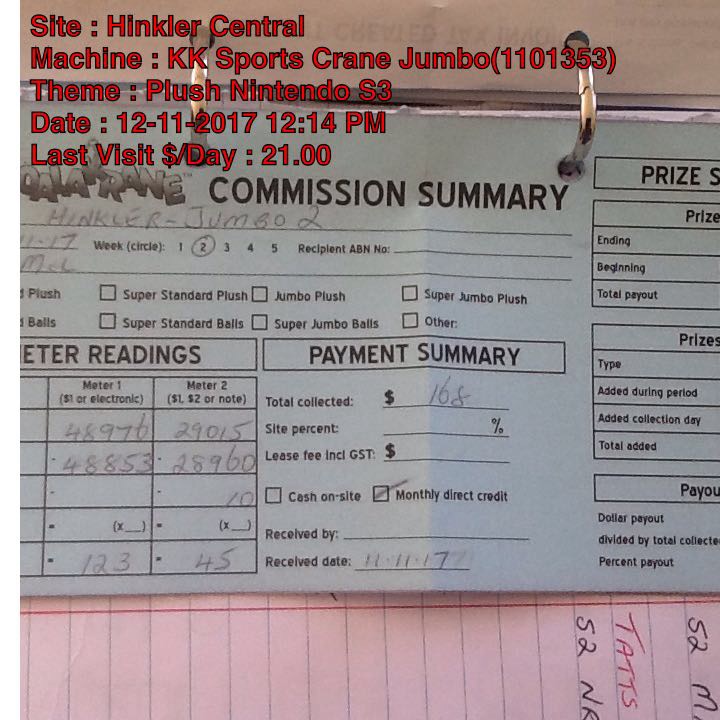 Site : Hinkler Central
Machine : KK Sports Crane Jumbo(1101353)
Theme : Plush Nintendo S3
Date : 12-11-2017 12:14 PM
Last Visit $/Day : 21.00
COMMISSION SUMMARY
HINKLER-JUMBO 2
11-17 Week (circle): 1 2 3 4 5 Recipient ABN No:
Plush Super Standard Plush Jumbo Plush Super Jumbo Plush
Balls Super Standard Balls Super Jumbo Balls Other:
ETER READINGS
Meter 1 Meter 2
($1 or electronic) ($1, $2 or note)
48976 29015
- 48853 - 28960
- - 10
= (x__) = (x__)
= 123 = 45
PAYMENT SUMMARY
Total collected: $ 168
Site percent: %
Lease fee incl GST: $
Cash on-site Monthly direct credit
Received by:
Received date: 11-11-17
PRIZE S
Prize
Ending
Beginning
Total payout
Prizes
Type
Added during period
Added collection day
Total added
Payou
Dollar payout
divided by total collecte
Percent payout
S2 M
TATTS
S2 NK